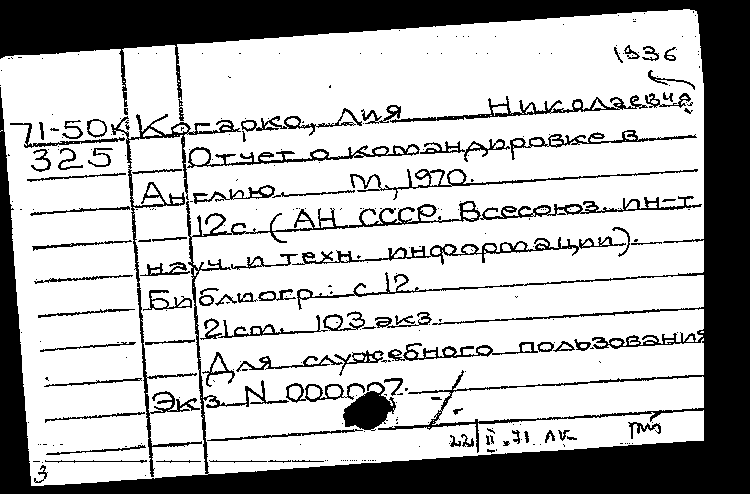 1936
71-50к Когарко, Лия Николаевна
325 Отчет о командировке в
Англию. М., 1970.
12с. (АН СССР. Всесоюз. ин-т
науч. и техн. информации).
Библиогр.: с 12.
21см. 103 экз.
Для служебного пользования
Экз N 000007.
22 II.71 ЛК
3